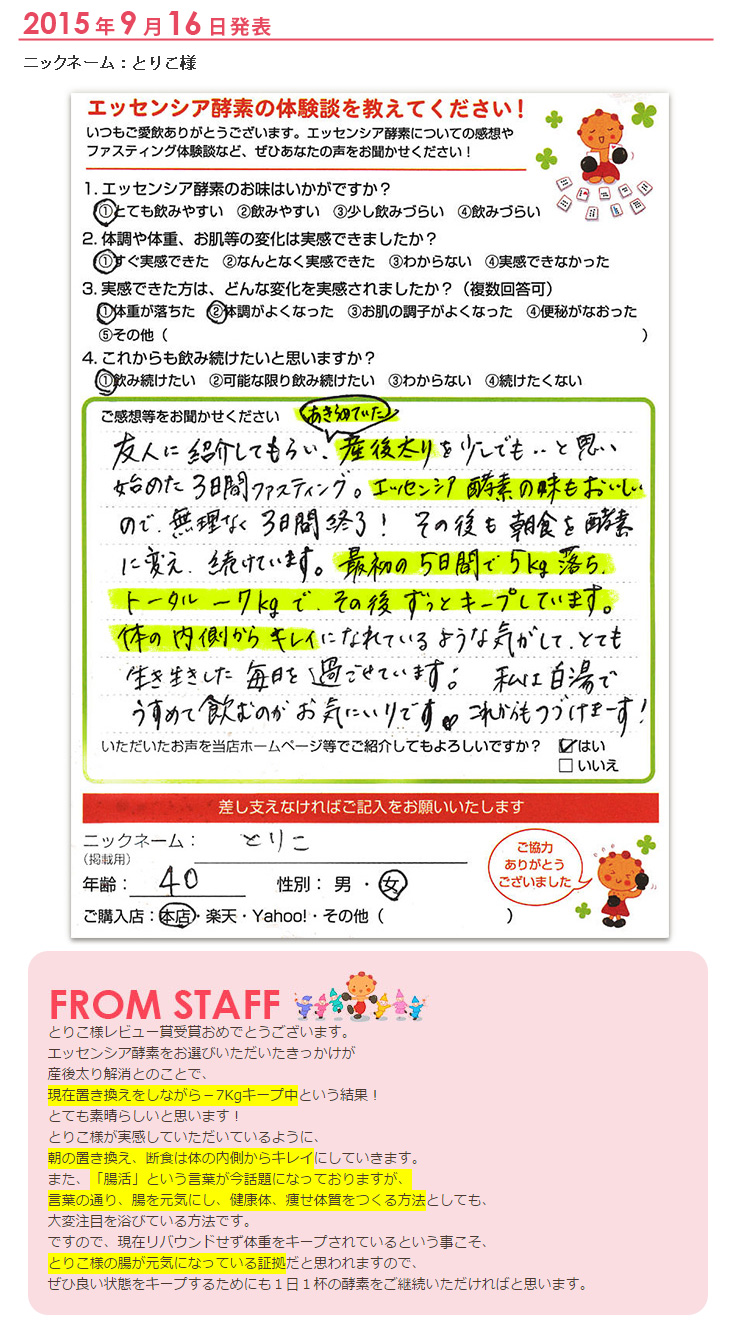 2015年9月16日発表
ニックネーム：とりこ様
エッセンシア酵素の体験談を教えてください！
いつもご愛飲ありがとうございます。エッセンシア酵素についての感想や
ファスティング体験談など、ぜひあなたの声をお聞かせください！
1. エッセンシア酵素のお味はいかがですか？
①とても飲みやすい ②飲みやすい ③少し飲みづらい ④飲みづらい
2. 体調や体重、お肌等の変化は実感できましたか？
①すぐ実感できた ②なんとなく実感できた ③わからない ④実感できなかった
3. 実感できた方は、どんな変化を実感されましたか？（複数回答可）
①体重が落ちた ②体調がよくなった ③お肌の調子がよくなった ④便秘がなおった
⑤その他（ ）
4. これからも飲み続けたいと思いますか？
①飲み続けたい ②可能な限り飲み続けたい ③わからない ④続けたくない
ご感想等をお聞かせください あきらめていた
友人に紹介してもらい、産後太りを少しでも‥と思い
始めた3日間ファスティング。エッセンシア酵素の味もおいしい
ので、無理なく3日間終了！ その後も朝食を酵素
に変え、続けています。最初の5日間で5kg落ち、
トータル－7kgで、その後ずっとキープしています。
体の内側からキレイになれているような気がして、とても
生き生きした毎日を過ごせています。 私は白湯で
うすめて飲むのがお気にいりです♥これからもつづけまーす！
いただいたお声を当店ホームページ等でご紹介してもよろしいですか？ ☑はい
□いいえ
差し支えなければご記入をお願いいたします
ニックネーム： とりこ
（掲載用）
年齢： 40 性別： 男 ・ 女
ご購入店：本店・楽天・Yahoo!・その他（ ）
ご協力
ありがとう
ございました
FROM STAFF
とりこ様レビュー賞受賞おめでとうございます。
エッセンシア酵素をお選びいただいたきっかけが
産後太り解消とのことで、
現在置き換えをしながら－7Kgキープ中という結果！
とても素晴らしいと思います！
とりこ様が実感していただいているように、
朝の置き換え、断食は体の内側からキレイにしていきます。
また、「腸活」という言葉が今話題になっておりますが、
言葉の通り、腸を元気にし、健康体、痩せ体質をつくる方法としても、
大変注目を浴びている方法です。
ですので、現在リバウンドせず体重をキープされているという事こそ、
とりこ様の腸が元気になっている証拠だと思われますので、
ぜひ良い状態をキープするためにも１日１杯の酵素をご継続いただければと思います。